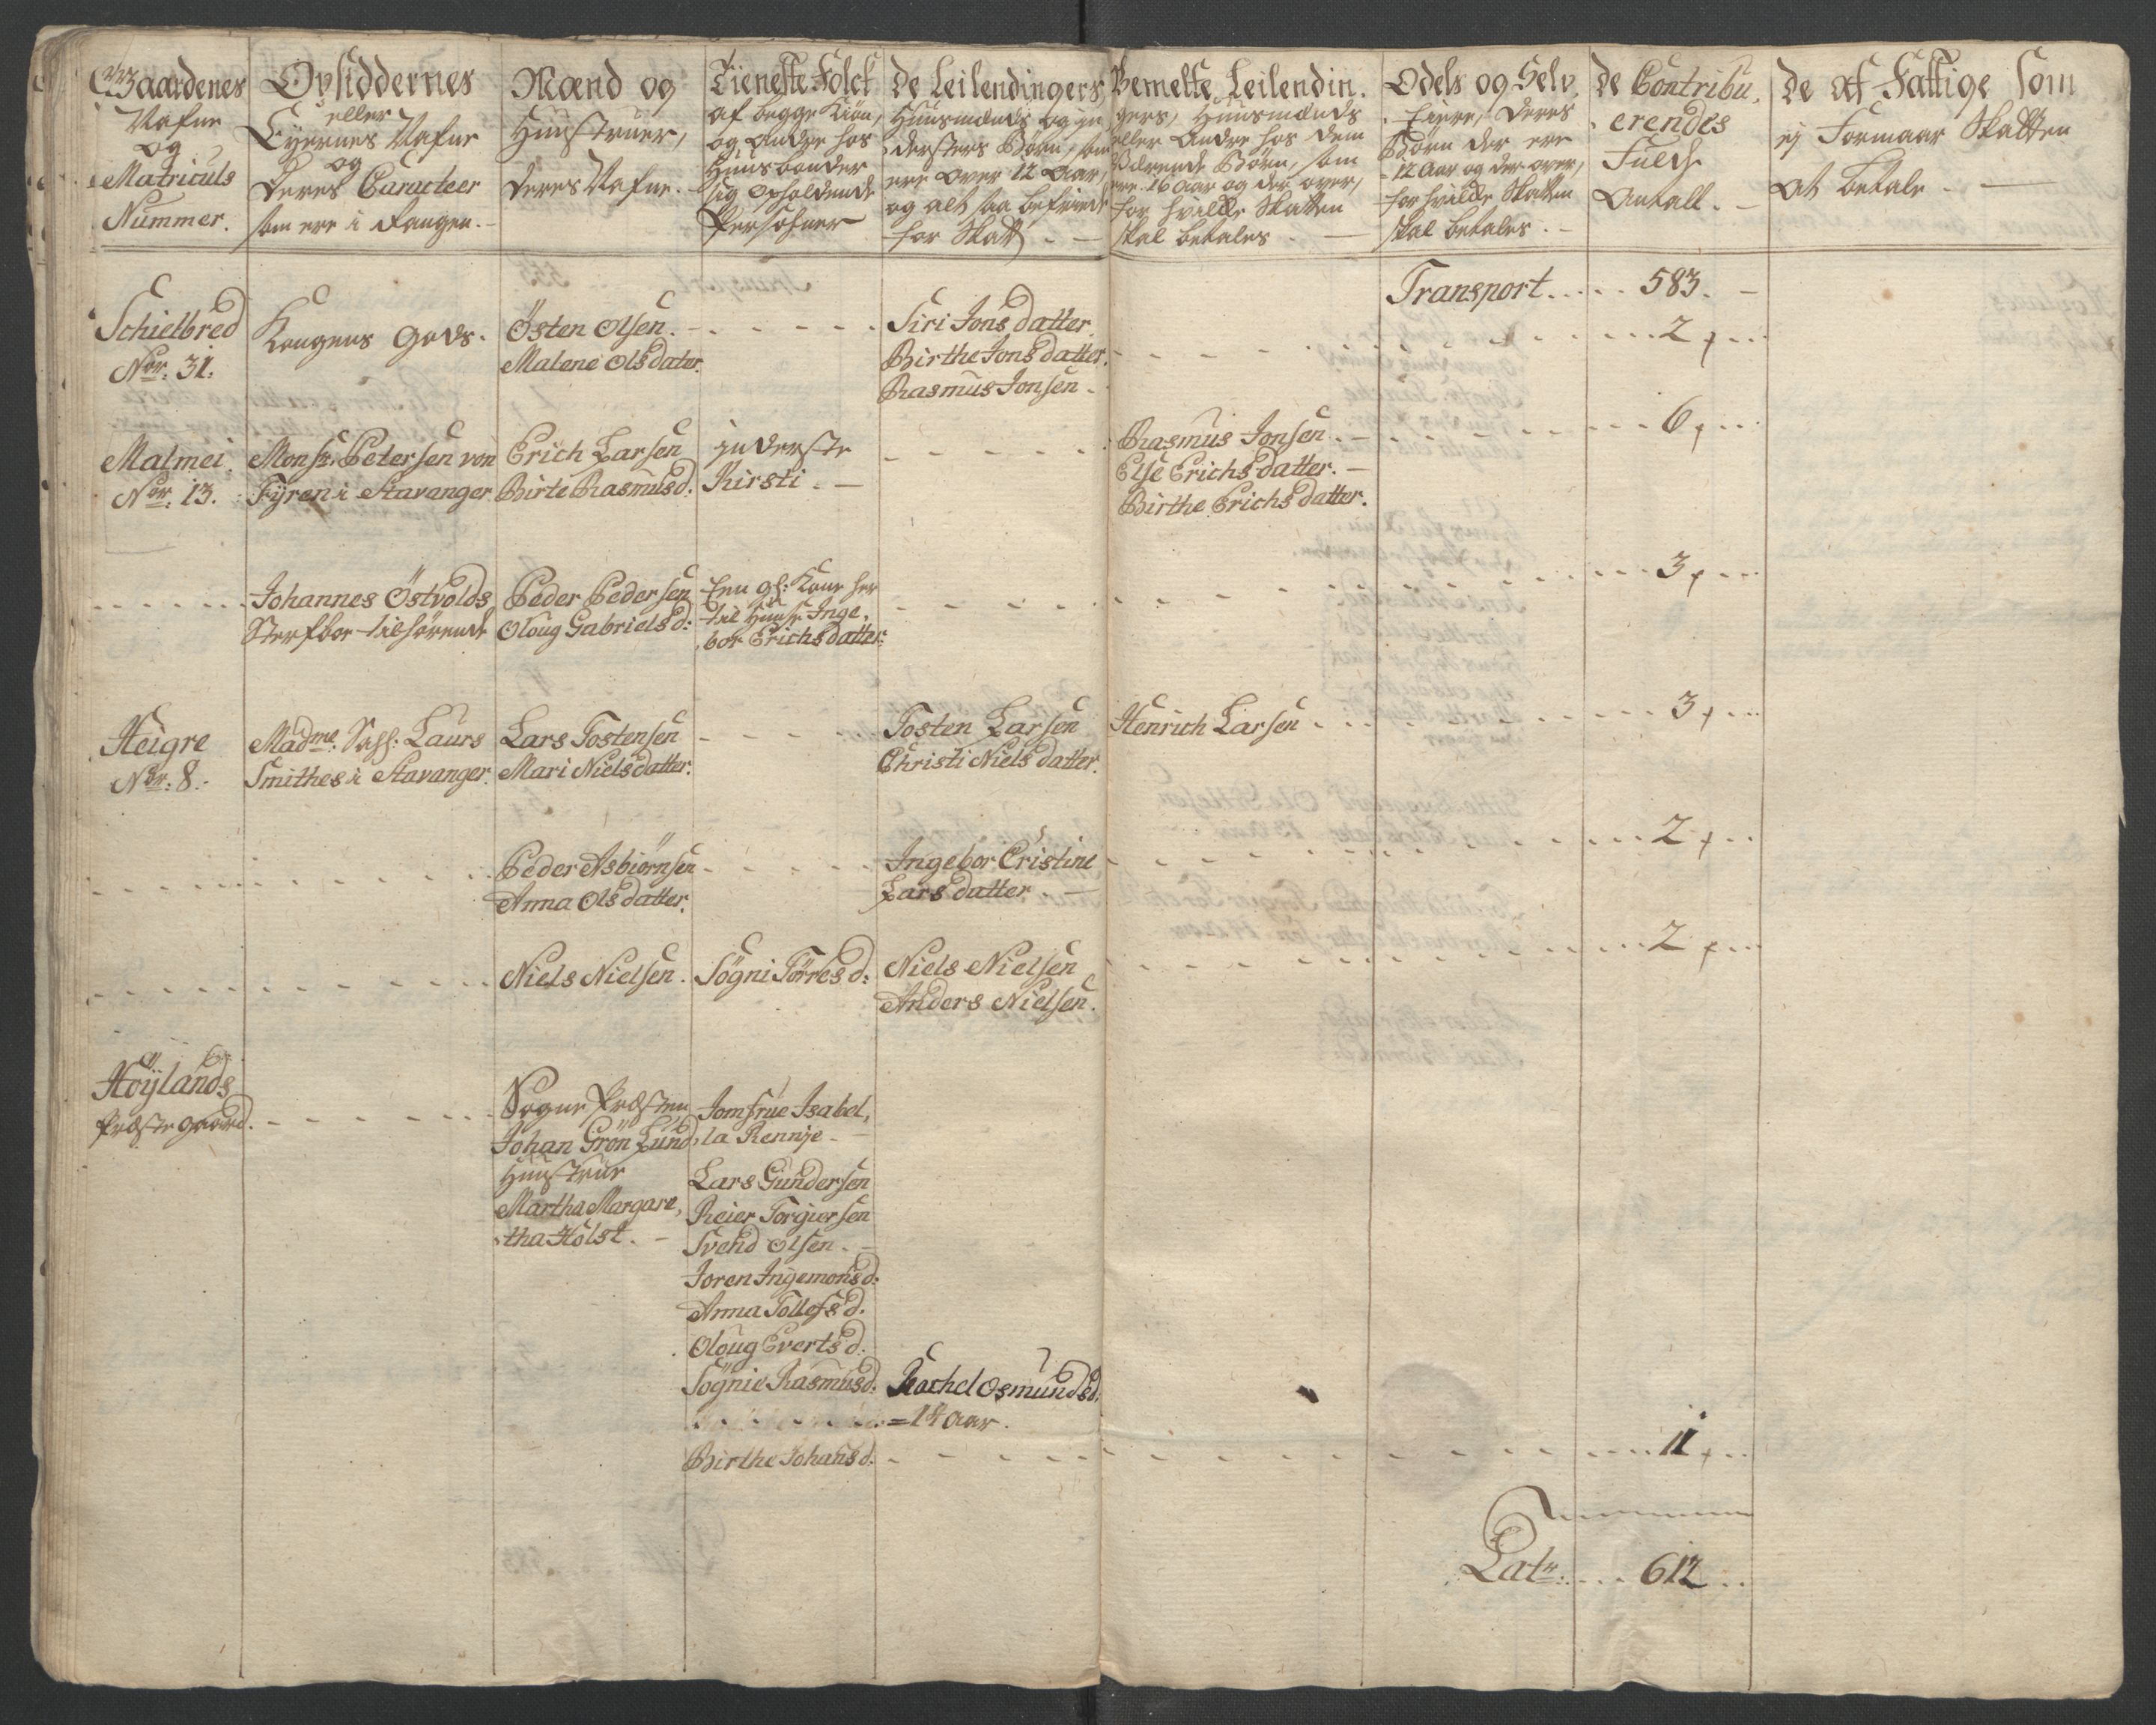 Gaardenes
Nafne
og
Matriculs
Nummer.
Opsiddernes
eller
Eyernes Nafne
og
Deres Caracteer
som ere i Fangen.
Mænd og
Hunstruer,
deres Nafne.
Tieneste Folck
af begge Kiøn,
og Andre hos
Huusbonder
sig opholdende
Persohner
De Leilendingers
Huusmænds og In
dersters Børn, som
ere over 12 Aar,
og alt saa befriede
for Skatt.
Bemelte Leilendin.
gers, Huusmænds
eller Andre hos dem
Værende Børn, som
ere 16 Aar og der over,
for hvilcke Skatten
skal betales.
Odels og Selv.
Eiere, Deres
Børn der ere
12 Aar og der over,
for hvilcke Skatten
skal betales.
De Contribu,
erendes
Fulde
Antall.
De af Fattige som
ej Formaar Skatten
at betale.
Transport. 583.
Schielbred
Nor. 31.
Kongens Gods.
Östen Olsen.
Malene Olsdater.
Siri Jons datter.
Birthe Jons datter.
Rasmus Jonsen.
2
Malmei.
Nor. 13.
Monsr. Petersen von
Fyren i Stavanger
Erich Larsen
Birte Rasmusd:
Inderste
Kirsti.
Rasmus Jonsen.
Else Erichs datter.
Birthe Erichs datter.
6
Johannes Östvolds
Sterfboe tilhørende
Peder Pedersen
Oloug Gabrielsd:
Een gl: Kone her
til Huuse Inge,
bor Erichsdatter:
3
Heigre
Nor: 8.
Madme. Sahl: Laurs
Smithes i Stavanger.
Lars Tostensen
Mari Nielsdatter.
Tosten Larsen
Christi Niels datter.
Henrich Larsen
3
Peder Asbiörnsen
Anna Olsdatter.
Ingebor Cristine
Lars datter.
2
Niels Nielsen.
Sögni Törresd:
Niels Nielsen
Anders Nielsen.
2
Höylands
Præstegaard.
Sogne Præsten
Johan Grön Lund,
Hunstrue
Martha Margare,
tha Holst.
Jomfrue Isabel,
la Rennie
Lars Gundersen
Reier Torgiersen
Svend Olsen.
Joren Ingemonsd:
Anna Tollefsd.
Oloug Evertsd.
Sögnie Rasmusd:
Rachel Osmundsd,
=14 Aar.
Birthe Johansd:
11
Latr. 612